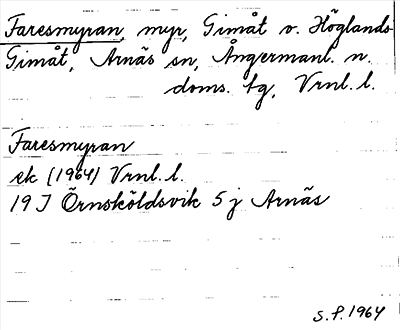 Faresmyran, myr, Gimåt o. Höglands-
Gimåt, Arnäs sn, Ångermanl. n.
doms. tg, Vrnl. l.
Faresmyran
ek (1964) Vrnl. l.
19 J Örnsköldsvik 5 j Arnäs
S.P. 1964